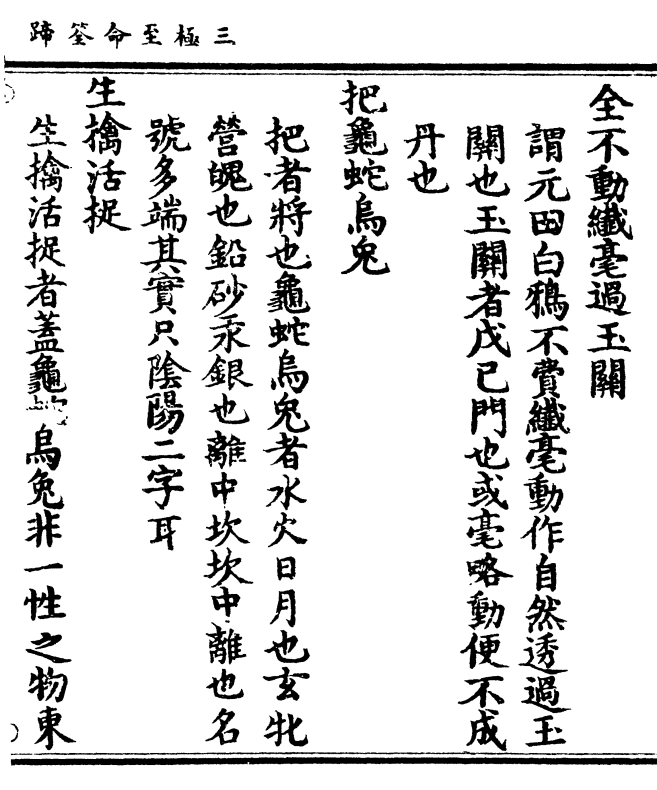 三極至命筌蹄
全不動纖毫過玉關
謂元田白鴉不費纖毫動作自然透過玉
關也玉關者戊己門也或毫略動便不成
丹也
把龜蛇烏兔
把者將也龜蛇烏兔者水火日月也玄牝
營魄也鉛砂汞銀也離中坎坎中離也名
號多端其實只陰陽二字耳
生擒活捉
生擒活捉者蓋龜烏兔非一性之物東